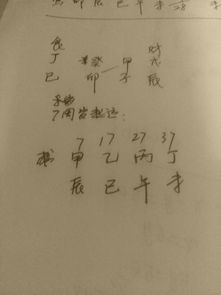 卯 辰 巳 午 未
食 财
丁 癸 甲 戊
巳 卯 — 木 辰
7周岁起运:
7 17 27 37
甲 乙 丙 丁
辰 巳 午 未